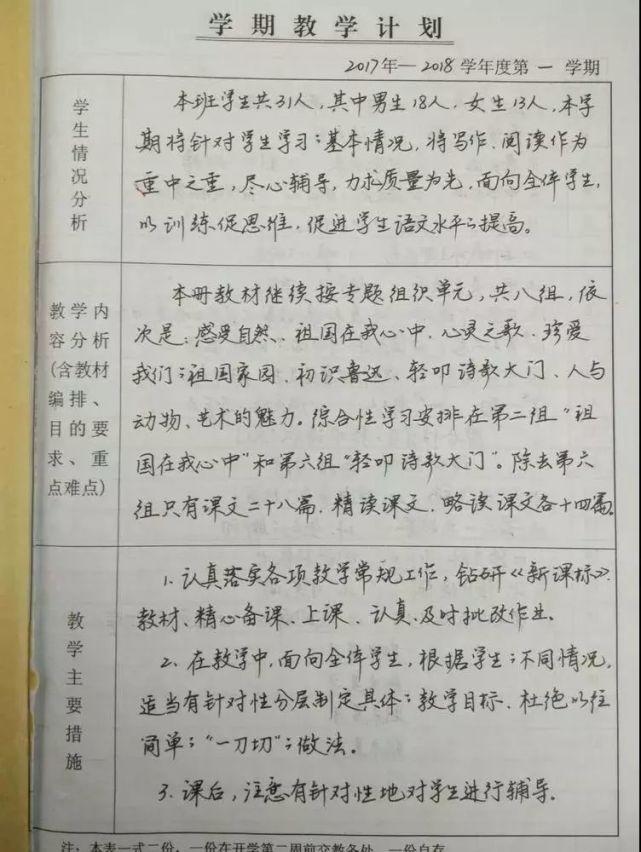 学期教学计划
2017年—2018学年度第一学期
学生情况分析
本班学生共31人，其中男生18人，女生13人，本学
期将针对学生学习的基本情况，将写作、阅读作为
重中之重，尽心辅导，力求质量为先，面向全体学生，
以训练促思维，促进学生语文水平的提高。
教学内
容分析
(含教材
编排、
目的要
求、重
点难点)
本册教材继续按专题组织单元，共八组，依
次是：感受自然、祖国在我心中、心灵之歌、珍爱
我们的祖国家园、初识鲁迅、轻叩诗歌大门、人与
动物、艺术的魅力。综合性学习安排在第二组“祖
国在我心中”和第六组“轻叩诗歌大门”。除去第六
组只有课文二十八篇，精读课文、略读课文各十四篇。
教学主要措施
1.认真落实各项教学常规工作，钻研《新课标》、
教材、精心备课、上课、认真、及时批改作业。
2.在教学中，面向全体学生，根据学生的不同情况，
适当有针对性分层制定具体的教学目标、杜绝以往
简单的“一刀切”的做法。
3.课后，注意有针对性地对学生进行辅导。
注：本表一式二份，一份在开学第二周前交教务处，一份自存